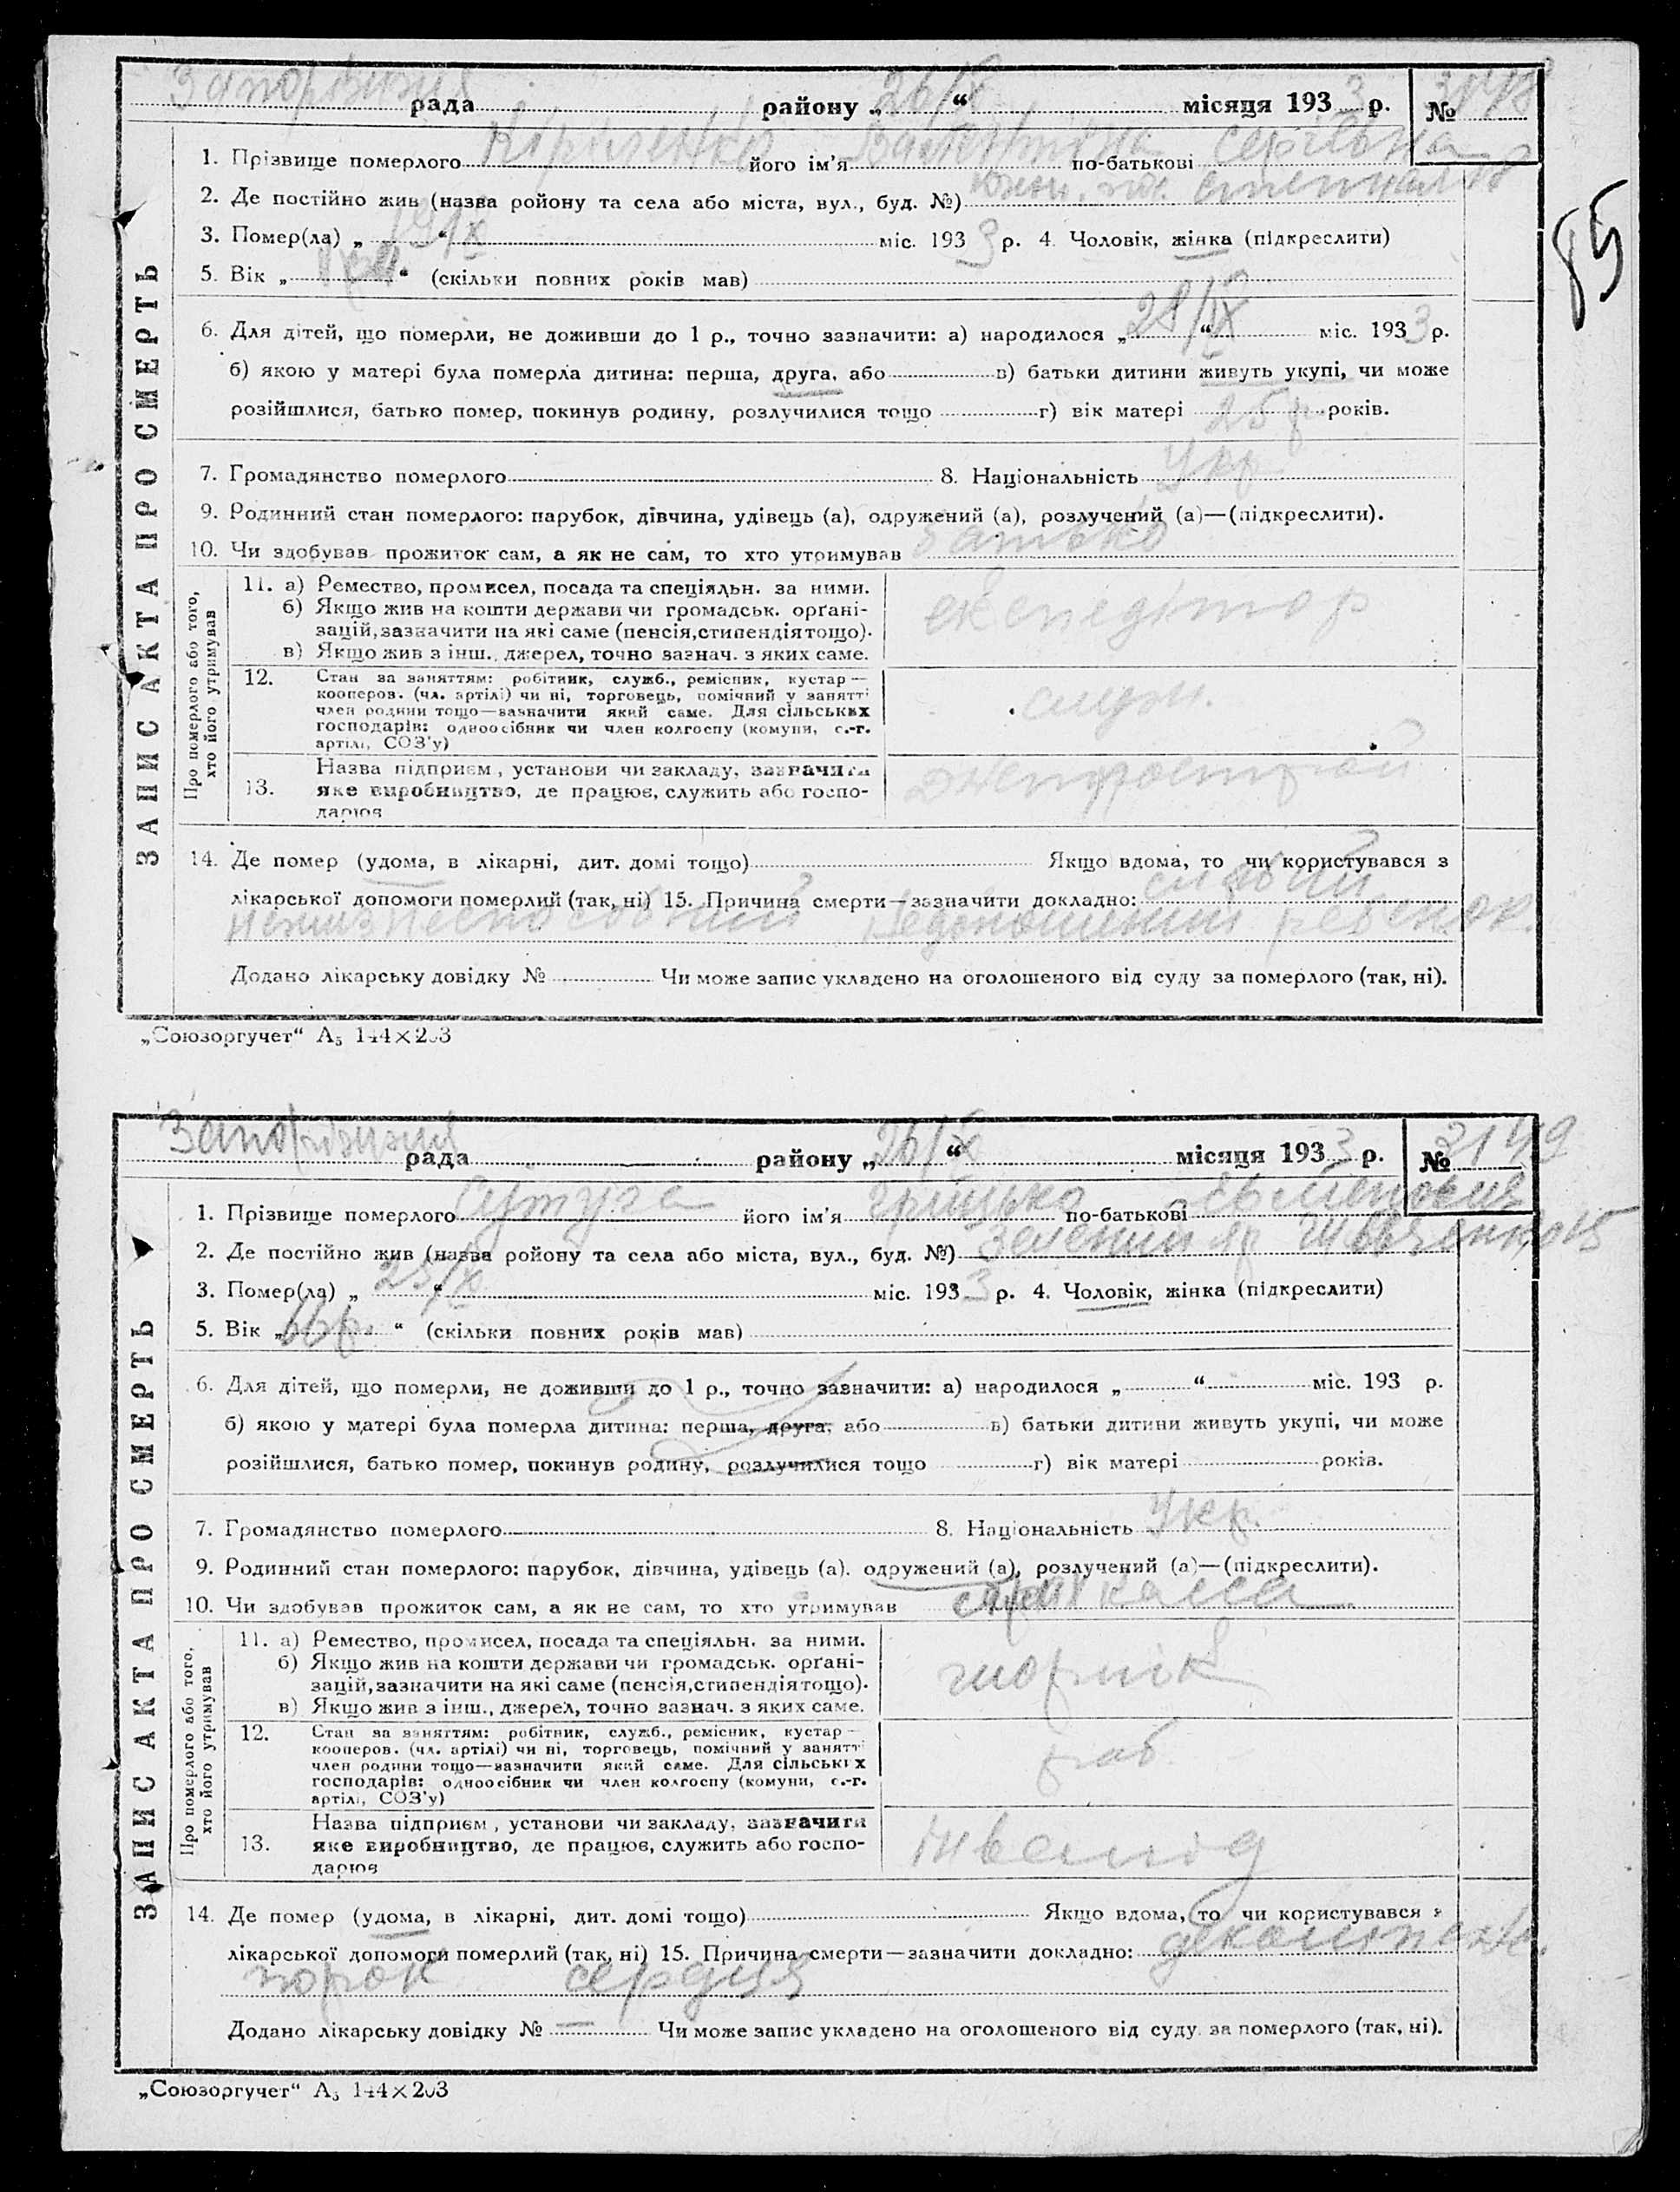 Запоріжжя рада району „26/X“ місяця 1933 р. № 3148
85
ЗАПИС АКТА ПРО СМЕРТЬ
1. Прізвище померлого Кириленко його ім'я Валентіна по-батькові Сергіївна
2. Де постійно жив (назва ройону та села або міста, вул., буд. №)
3. Помер(ла) „ “ міс. 1933 р. 4. Чоловік, жінка (підкреслити)
5. Вік „ “ (скільки повних років мав)
6. Для дітей, що померли, не доживши до 1 р., точно зазначити: а) народилося „28/IX“ міс. 1933 р.
б) якою у матері була померла дитина: перша, друга, або в) батьки дитини живуть укупі, чи може
розійшлися, батько помер, покинув родину, розлучилися тощо г) вік матері 25 р. років.
7. Громадянство померлого 8. Національність Укр
9. Родинний стан померлого: парубок, дівчина, удівець (а), одружений (а), розлучений (а)—(підкреслити).
10. Чи здобував прожиток сам, а як не сам, то хто утримував батько
Про померлого або того, хто його утримував
11. а) Ремество, промисел, посада та спеціяльн. за ними.
б) Якщо жив на кошти держави чи громадськ. орґані-
зацій, зазначити на які саме (пенсія, стипендія тощо).
в) Якщо жив з інш., джерел, точно зазнач. з яких саме.
експедітор
12. Стан за заняттям: робітник, служб., ремісник, кустар—
кооперов. (чл. артілі) чи ні, торговець, помічний у занятті
член родини тощо—зазначити який саме. Для сільських
господарів: одноосібник чи член колгоспу (комуни, с.-г.
артілі, СОЗ'у)
служ.
13. Назва підприєм, установи чи закладу, зазначити
яке виробництво, де працює, служить або госпо-
дарює
Днепрострой
14. Де помер (удома, в лікарні, дит. домі тощо) Якщо вдома, то чи користувався з
лікарської допомоги померлий (так, ні) 15. Причина смерти—зазначити докладно: слабий
недоношений ребенок.
Додано лікарську довідку № Чи може запис укладено на оголошеного від суду за померлого (так, ні).
„Союзоргучет“ А₅ 144×203
Запоріжжя рада району „26/X“ місяця 1933 р. № 3149
ЗАПИС АКТА ПРО СМЕРТЬ
1. Прізвище померлого Сутуга його ім'я Грицько по-батькові
2. Де постійно жив (назва ройону та села або міста, вул., буд. №) Зелений яр
3. Помер(ла) „25/X“ міс. 1933 р. 4. Чоловік, жінка (підкреслити)
5. Вік „66 р.“ (скільки повних років мав)
6. Для дітей, що померли, не доживши до 1 р., точно зазначити: а) народилося „ “ міс. 193 р.
б) якою у матері була померла дитина: перша, друга, або в) батьки дитини живуть укупі, чи може
розійшлися, батько помер, покинув родину, розлучилися тощо г) вік матері років.
7. Громадянство померлого 8. Національність Укр.
9. Родинний стан померлого: парубок, дівчина, удівець (а). одружений (а), розлучений (а)—(підкреслити).
10. Чи здобував прожиток сам, а як не сам, то хто утримував страхкасса
Про померлого або того, хто його утримував
11. а) Ремество, промисел, посада та спеціяльн. за ними.
б) Якщо жив на кошти держави чи громадськ. орґані-
зацій, зазначити на які саме (пенсія, стипендія тощо).
в) Якщо жив з інш., джерел, точно зазнач. з яких саме.
12. Стан за заняттям: робітник, служб., ремісник, кустар—
кооперов. (чл. артілі) чи ні, торговець, помічний у занятті
член родини тощо—зазначити який саме. Для сільських
господарів: одноосібник чи член колгоспу (комуни, с.-г.
артілі, СОЗ'у)
раб
13. Назва підприєм, установи чи закладу, зазначити
яке виробництво, де працює, служить або госпо-
дарює
інвалід
14. Де помер (удома, в лікарні, дит. домі тощо) Якщо вдома, то чи користувався з
лікарської допомоги померлий (так, ні) 15. Причина смерти—зазначити докладно:
порок сердця
Додано лікарську довідку № — Чи може запис укладено на оголошеного від суду за померлого (так, ні).
„Союзоргучет“ А₅ 144×203